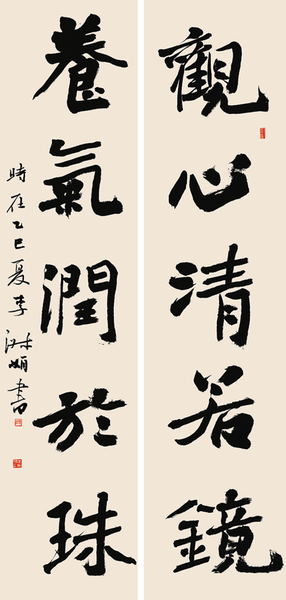 觀心清若鏡
養氣潤於珠
時在乙巳夏李淑娟書